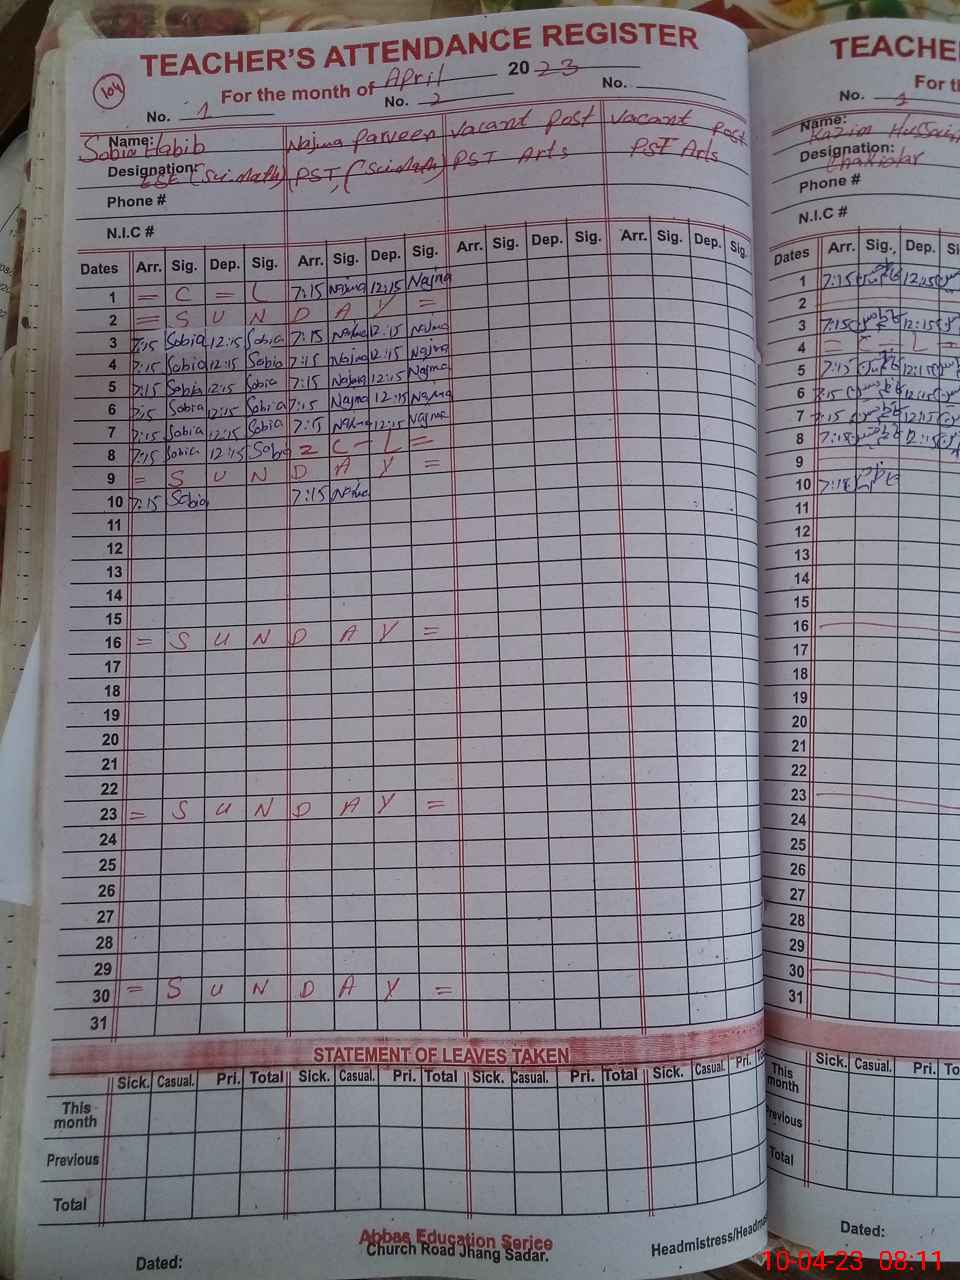 TEACHER'S ATTENDANCE REGISTER
104
For the month of April 2023
No. 1 No. 2 No.
Name: Sobia Habib Najma Parveen Vacant Post Vacant Post
Designation: ESE (Sci math) PST, (Sci math) PST Arts PST Arts
Phone #
N.I.C #
Dates Arr. Sig. Dep. Sig. Arr. Sig. Dep. Sig. Arr. Sig. Dep. Sig. Arr. Sig. Dep. Sig.
1 = C = L 7:15 Najma 12:15 Najma
2 = S U N D A Y =
3 7:15 Sobia 12:15 Sobia 7:15 Najma 12:15 Najma
4 7:15 Sobia 12:15 Sobia 7:15 Najma 12:15 Najma
5 7:15 Sobia 12:15 Sobia 7:15 Najma 12:15 Najma
6 7:15 Sobia 12:15 Sobia 7:15 Najma 12:15 Najma
7 7:15 Sobia 12:15 Sobia 7:15 Najma 12:15 Najma
8 7:15 Sobia 12:15 Sobia = C - L =
9 = S U N D A Y =
10 7:15 Sobia 7:15 Najma
11
12
13
14
15
16 = S U N D A Y =
17
18
19
20
21
22
23 = S U N D A Y =
24
25
26
27
28
29
30 = S U N D A Y =
31
STATEMENT OF LEAVES TAKEN
Sick. Casual. Pri. Total Sick. Casual. Pri. Total Sick. Casual. Pri. Total Sick. Casual. Pri.
This month
Previous
Total
Abbas Education Serice
Church Road Jhang Sadar.
Dated: Headmistress/Headm
TEACHE
For th
No. 1
Name: Kazim Hussain
Designation: Chokidar
Phone #
N.I.C #
Dates Arr. Sig. Dep. Si
1 7:15 12:15
2
3 7:15 12:15
4 = C - L =
5 7:15 12:15
6 7:15 12:15
7 7:15 12:15
8 7:18 12:15
9
10 7:18
11
12
13
14
15
16
17
18
19
20
21
22
23
24
25
26
27
28
29
30
31
Sick. Casual. Pri. To
This month
Previous
Total
Dated:
10-04-23 08:11